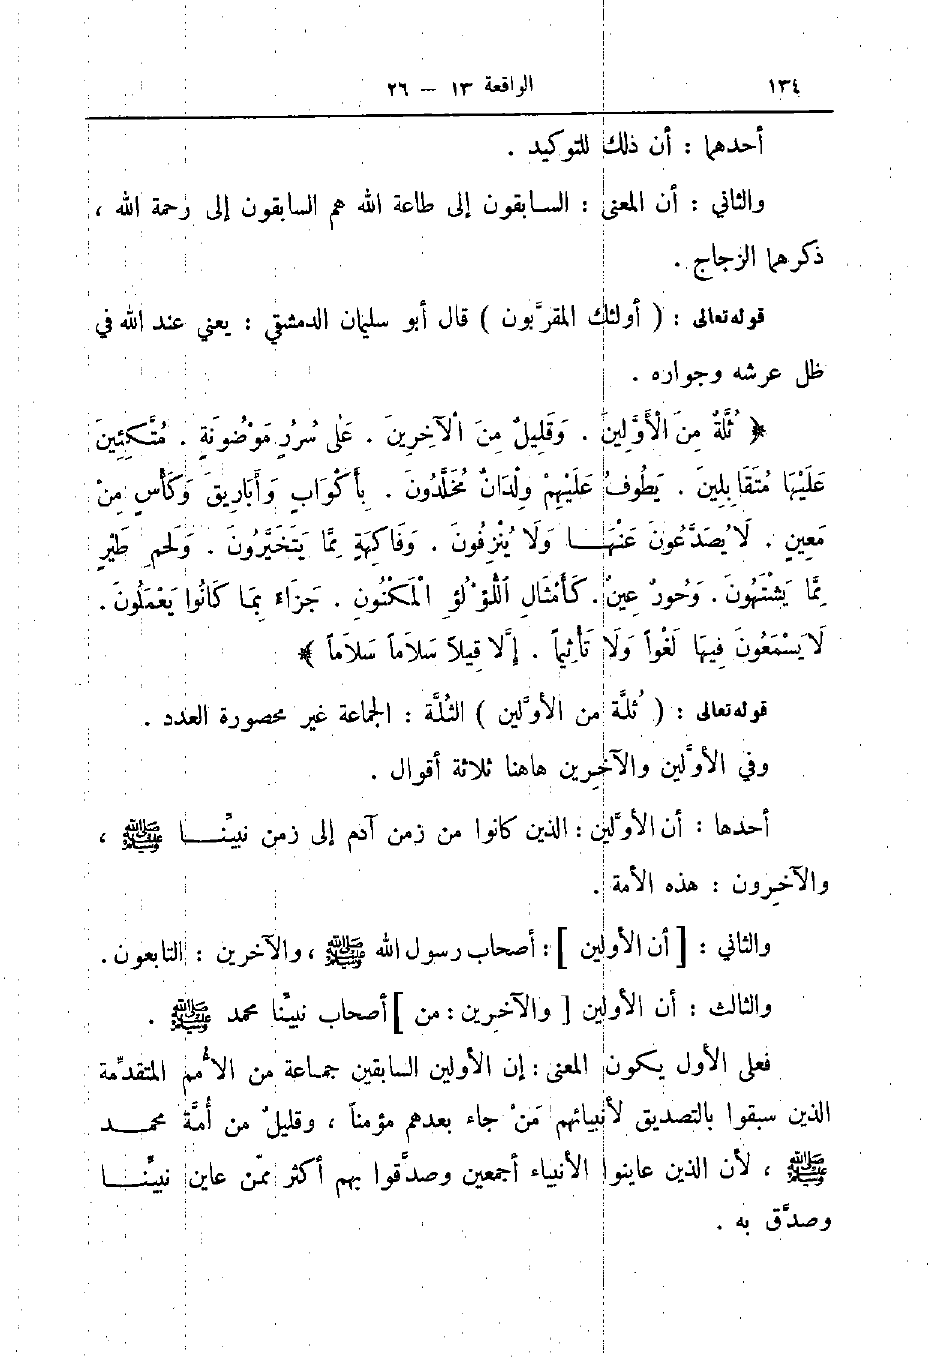 ١٣٤ الواقعة ١٣ – ٢٦
أحدهما : أن ذلك للتوكيد .
والثاني : أن المعنى : السابقون إلى طاعة الله هم السابقون إلى رحمة الله ،
ذكرهما الزجاج .
قوله تعالى : ( أولئك المقرَّبون ) قال أبو سليمان الدمشقي : يعني عند الله في
ظل عرشه وجواره .
﴿ ثُلَّةٌ مِنَ الْأَوَّلِينَ . وَقَلِيلٌ مِنَ الْآخِرِينَ . عَلَى سُرُرٍ مَوْضُونَةٍ . مُتَّكِئِينَ
عَلَيْهَا مُتَقَابِلِينَ . يَطُوفُ عَلَيْهِمْ وِلْدَانٌ مُخَلَّدُونَ . بِأَكْوَابٍ وَأَبَارِيقَ وَكَأْسٍ مِنْ
مَعِينٍ . لَا يُصَدَّعُونَ عَنْهَا وَلَا يُنْزِفُونَ . وَفَاكِهَةٍ مِمَّا يَتَخَيَّرُونَ . وَلَحْمِ طَيْرٍ
مِمَّا يَشْتَهُونَ . وَحُورٌ عِينٌ . كَأَمْثَالِ اللُّؤْلُؤِ الْمَكْنُونِ . جَزَاءً بِمَا كَانُوا يَعْمَلُونَ .
لَا يَسْمَعُونَ فِيهَا لَغْواً وَلَا تَأْثِيماً . إِلَّا قِيلاً سَلَاماً سَلَاماً ﴾
قوله تعالى : ( ثُلَّة من الأوَّلين ) الثُلَّة : الجماعة غير محصورة العدد .
وفي الأوَّلين والآخِرين هاهنا ثلاثة أقوال .
أحدها : أن الأوَّلين : الذين كانوا من زمن آدم إلى زمن نبيِّنا ﷺ ،
والآخرون : هذه الأمة .
والثاني : [ أن الأولين ] : أصحاب رسول الله ﷺ ، والآخرين : التابعون .
والثالث : أن الأولين [ والآخرين : من ] أصحاب نبيِّنا محمد ﷺ .
فعلى الأول يكون المعنى : إن الأولين السابقين جماعة من الأُمم المتقدِّمة
الذين سبقوا بالتصديق لأنبيائهم مَنْ جاء بعدهم مؤمناً ، وقليلٌ من أُمَّة محمد
ﷺ ، لأن الذين عاينوا الأنبياء أجمعين وصدَّقوا بهم أكثر ممّن عاين نبيِّنا
وصدَّق به .